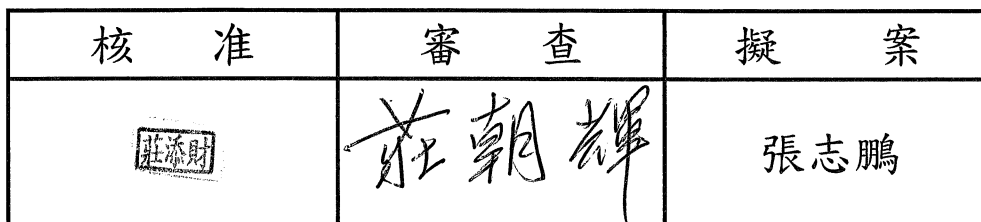 核 准 審 查 擬 案
莊添財 莊朝輝 張志鵬